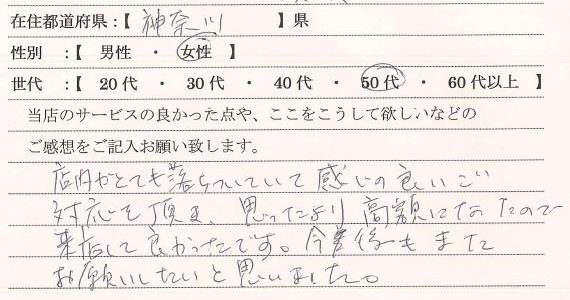 在住都道府県:【 神奈川 】県
性別 :【 男性 ・ 女性 】
世代 :【 20代 ・ 30代 ・ 40代 ・ 50代 ・ 60代以上 】
当店のサービスの良かった点や、ここをこうして欲しいなどの
ご感想をご記入お願い致します。
店内がとても落ちついていて感じの良いご
対応を頂き、思ったより高額になったので
来店して良かったです。今後もまた
お願いしたいと思いました。